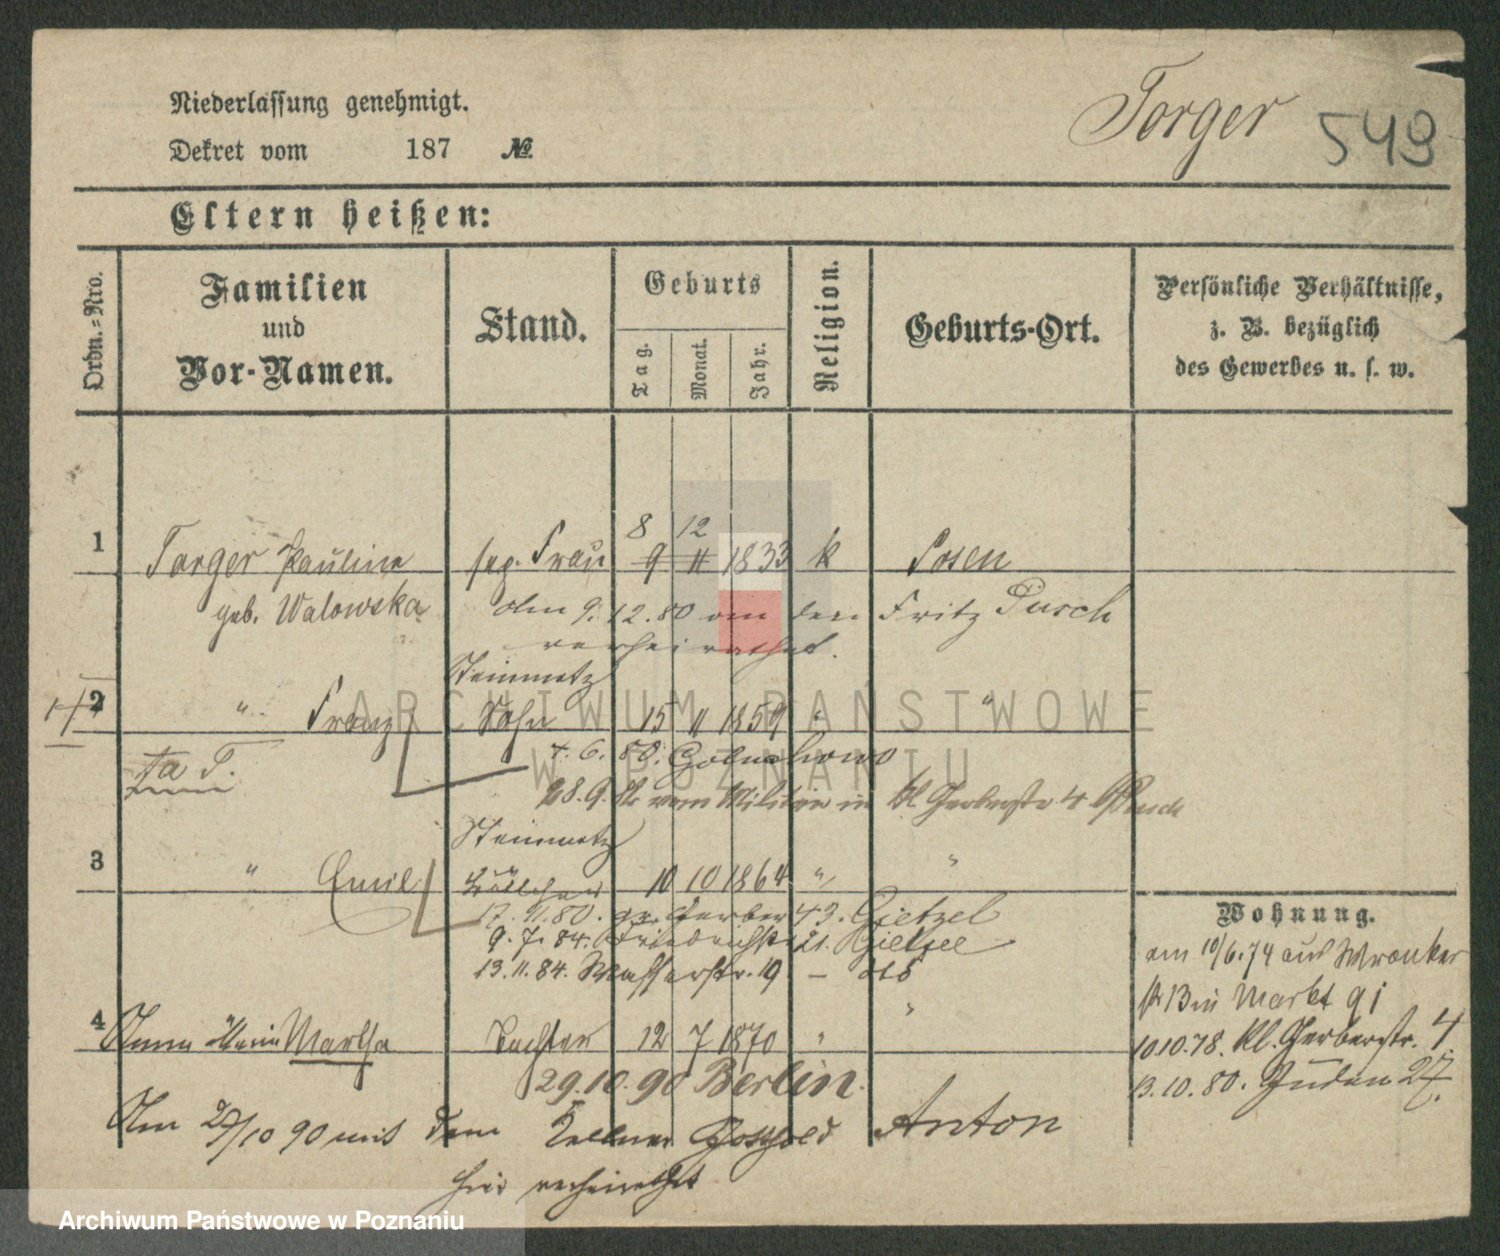 Torger 549
Niederlassung genehmigt.
Dekret vom 187 №
Eltern heißen:
Ordn.=Nro.
Familien
und
Vor-Namen.
Stand.
Geburts
Tag.
Monat.
Jahr.
Religion.
Geburts-Ort.
Persönliche Verhältnisse,
z. B. bezüglich
des Gewerbes u. s. w.
8 12
1 Torger Pauline sep. Frau 9 11 1833 k Posen
geb. Walowska Am 9.12.80 an den Fritz Pusch
verheirathet.
Steinmetz
2 " Franz Sohn 15 11 1859 " "
7.6.80. Goluchowo
28.9. vom Militär in kl Gerberstr 4
Steinmetz
3 " Emil 10 10 1864 " "
17.11.80. gr. Gerber 43. Gietzel
9.7.84. Friedrichstr 21. Gietzel
13.11.84. Wasserstr. 19 –
4 Anna Maria Martha Tochter 12 7 1870 " "
29.10.90 Berlin.
Am 29/10 90 mit dem Kellner Gotthold Anton
hier verheirathet
Wohnung.
am 10/6.74 aus Wronker
str 13 in Markt 91
10.10.78. kl. Gerberstr. 4.
13.10.80. Juden 27.
ARCHIWUM PAŃSTWOWE
W POZNANIU
Archiwum Państwowe w Poznaniu